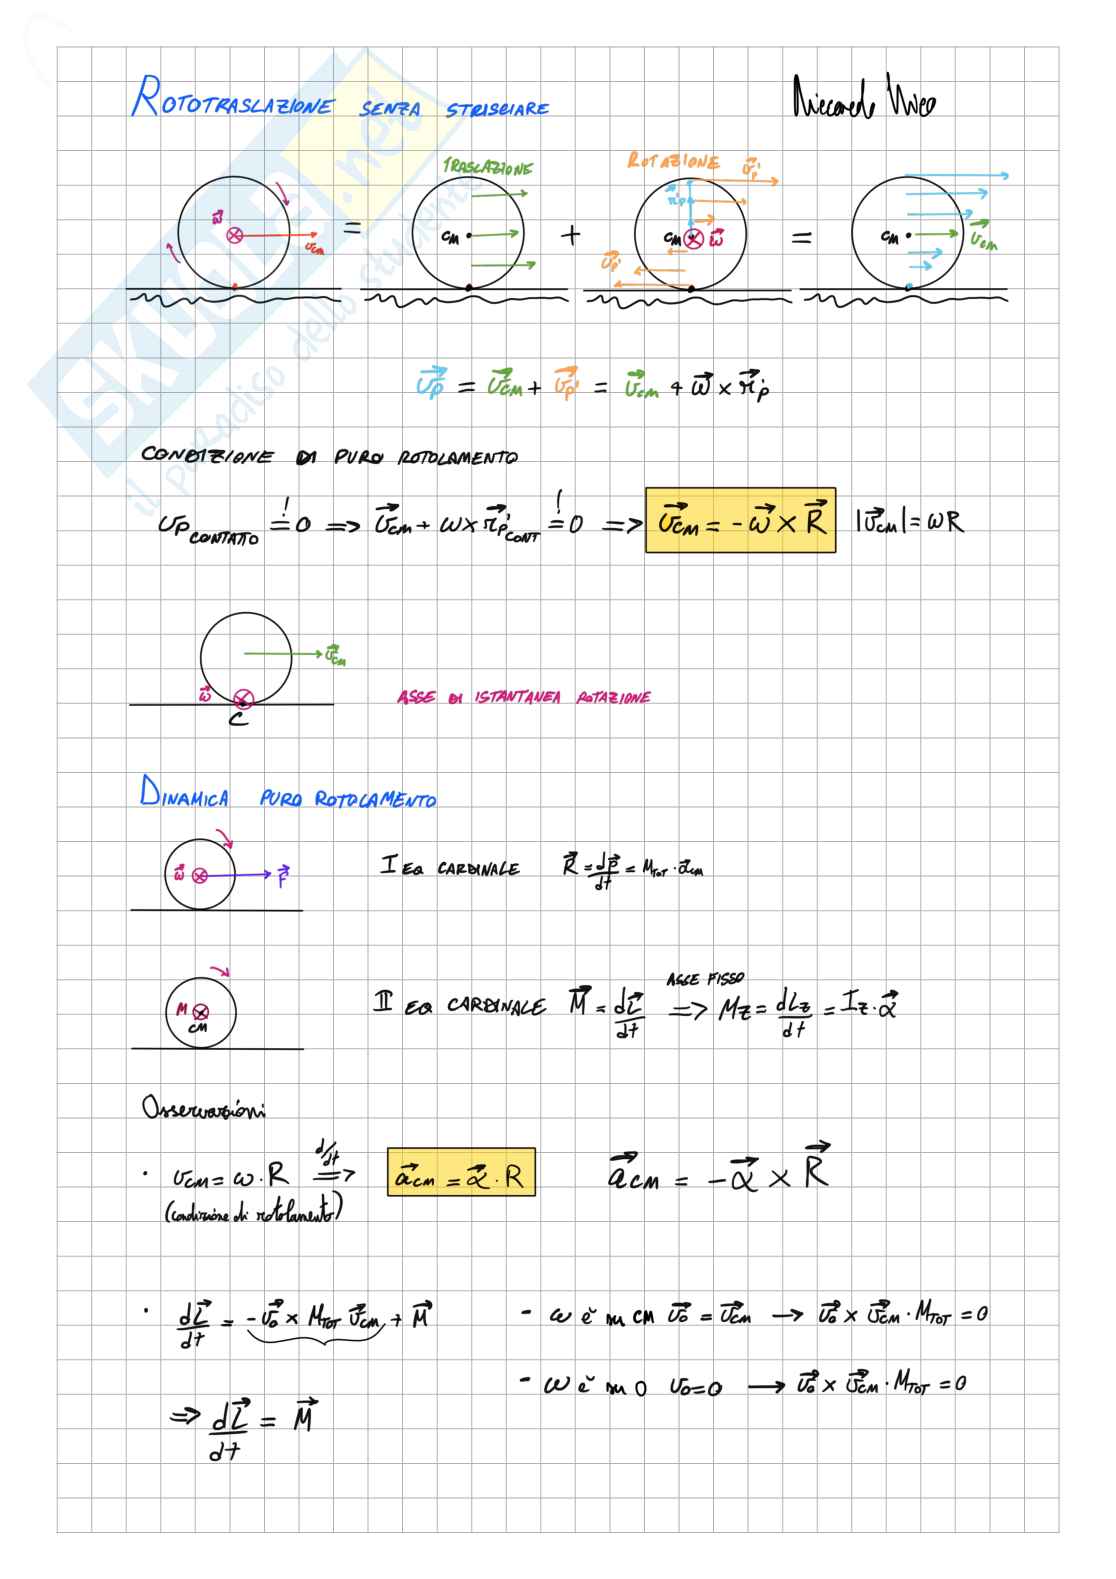 ROTOTRASLAZIONE SENZA STRISCIARE
Riccardo Nico
SKUOLA.net
il paradiso dello studente
ω⃗ ⊗ v_CM = TRASLAZIONE CM + ROTAZIONE v⃗_p' r⃗_p' CM ⊗ ω⃗ v⃗_p' = CM v⃗_CM
v⃗_p = v⃗_CM + v⃗_p' = v⃗_CM + ω⃗ × r⃗_p'
CONDIZIONE DI PURO ROTOLAMENTO
v_P CONTATTO =! 0 => v⃗_CM + ω × r⃗_p' CONT =! 0 => v⃗_CM = - ω⃗ × R⃗ |v⃗_CM| = ωR
v⃗_CM
ω⃗ ⊗ ASSE DI ISTANTANEA ROTAZIONE
C
DINAMICA PURO ROTOLAMENTO
ω⃗ ⊗ F⃗
I EQ CARDINALE R⃗ = dp⃗/dt = M_TOT · a⃗_CM
M ⊗ CM
II EQ CARDINALE M⃗ = dL⃗/dt ASSE FISSO => M_z = dL_z/dt = I_z · α⃗
Osservazioni
· v_CM = ω · R d/dt => a⃗_CM = α⃗ · R a⃗_CM = - α⃗ × R⃗
(condizione di rotolamento)
· dL⃗/dt = - v⃗_o × M_TOT v⃗_CM + M⃗
- ω è su CM v⃗_o = v⃗_CM → v⃗_o × v⃗_CM · M_TOT = 0
- ω è su O v_o = 0 → v⃗_o × v⃗_CM · M_TOT = 0
=> dL⃗/dt = M⃗